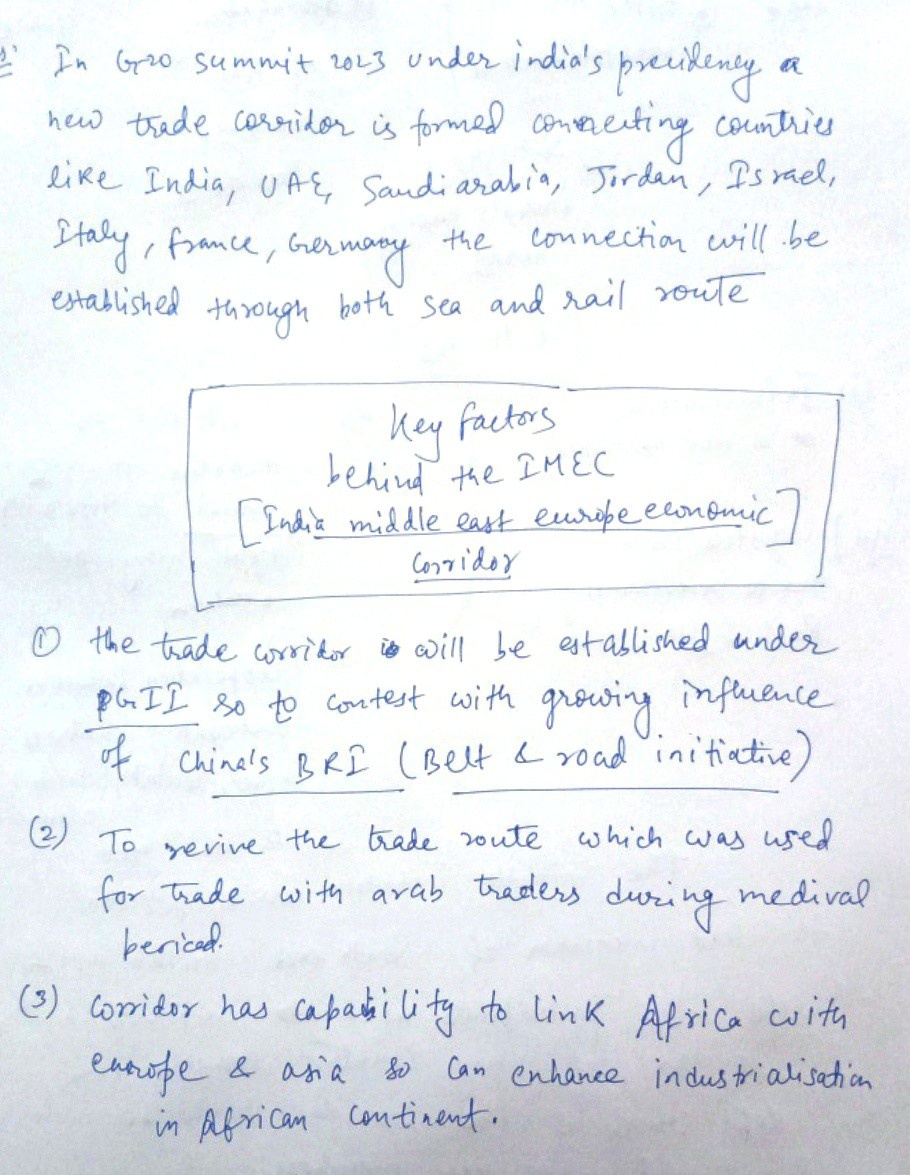 In G20 summit 2023 under india's presidency a
new trade corridor is formed connecting countries
like India, UAE, Saudi arabia, Jordan, Israel,
Italy, france, Germany the connection will be
established through both sea and rail route
Key factors
behind the IMEC
[India middle east europe economic]
Corridor
① the trade corridor will be established under
PGII so to contest with growing influence
of China's BRI (Belt & road initiative)
(2) To revive the trade route which was used
for trade with arab traders during medival
period.
(3) Corridor has capability to link Africa with
europe & asia so can enhance industrialisation
in African continent.